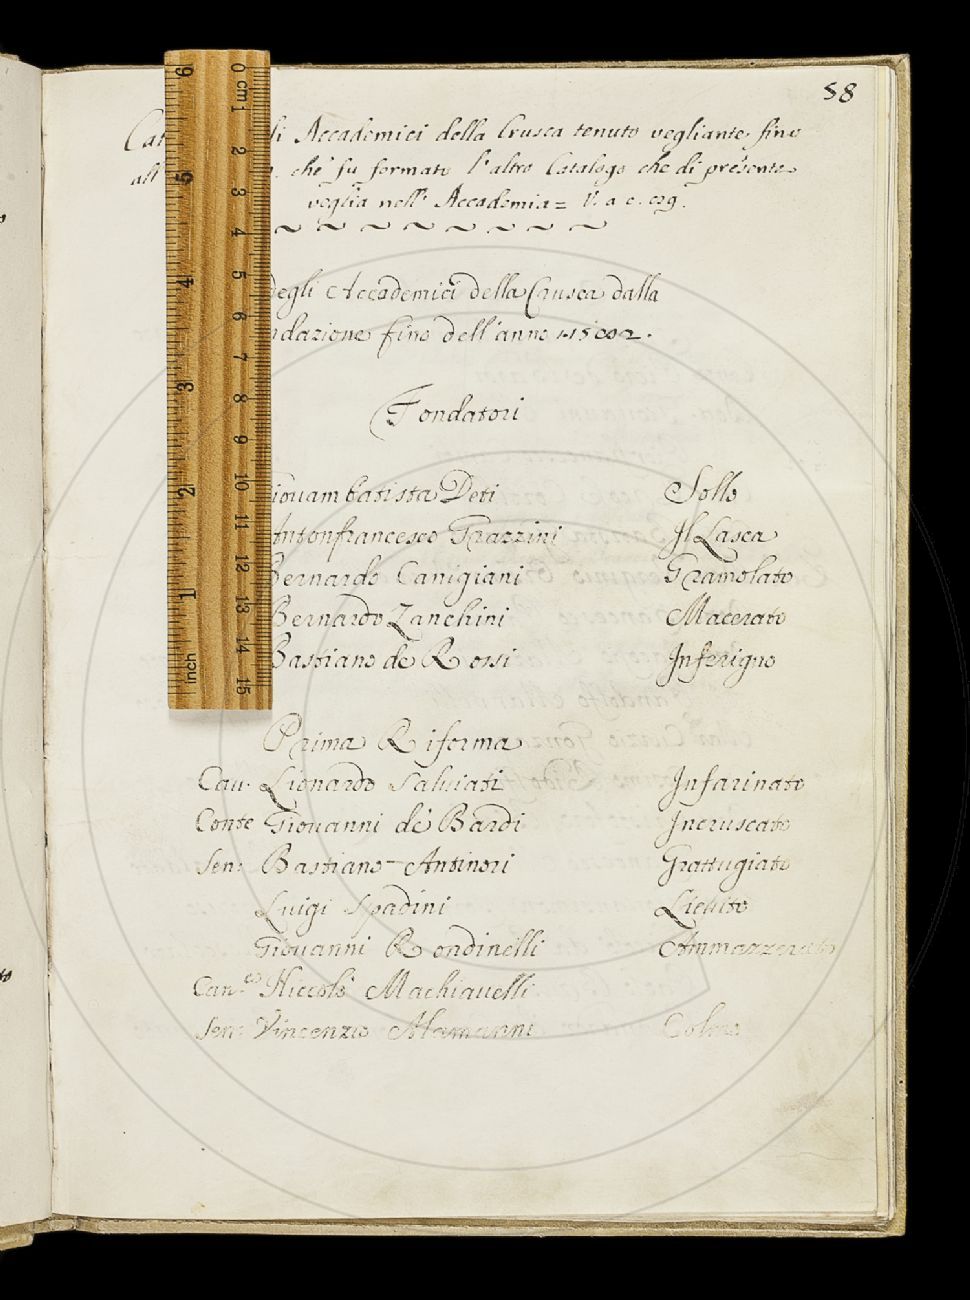 58
Cat di Accademici della Crusca tenuto vegliante fino
all' che fu formato l'altro Catalogo che di presente
veglia nell' Accademia = V. a c.
degli Accademici della Crusca dalla
ndazione fino dell'anno
Fondatori
iouambatista Deti Sollo
Antonfrancesco Grazzini Il Lasca
Bernardo Canigiani Gramolato
Bernardo Zanchini Macerato
Bastiano de Rossi Inferigno
Prima Riforma
Cau. Lionardo Saluiati Infarinato
Conte Giouanni de' Bardi Incruscato
Sen: Bastiano Antinori Grattugiato
Luigi Spadini Lieuito
Giouanni Rondinelli Ammazzerato
Can.co Niccolò Machiauelli
Sen: Vincenzio Alamanni Colmo
6 5 4 3 2 1 inch
0 cm 1 2 3 4 5 6 7 8 9 10 11 12 13 14 15